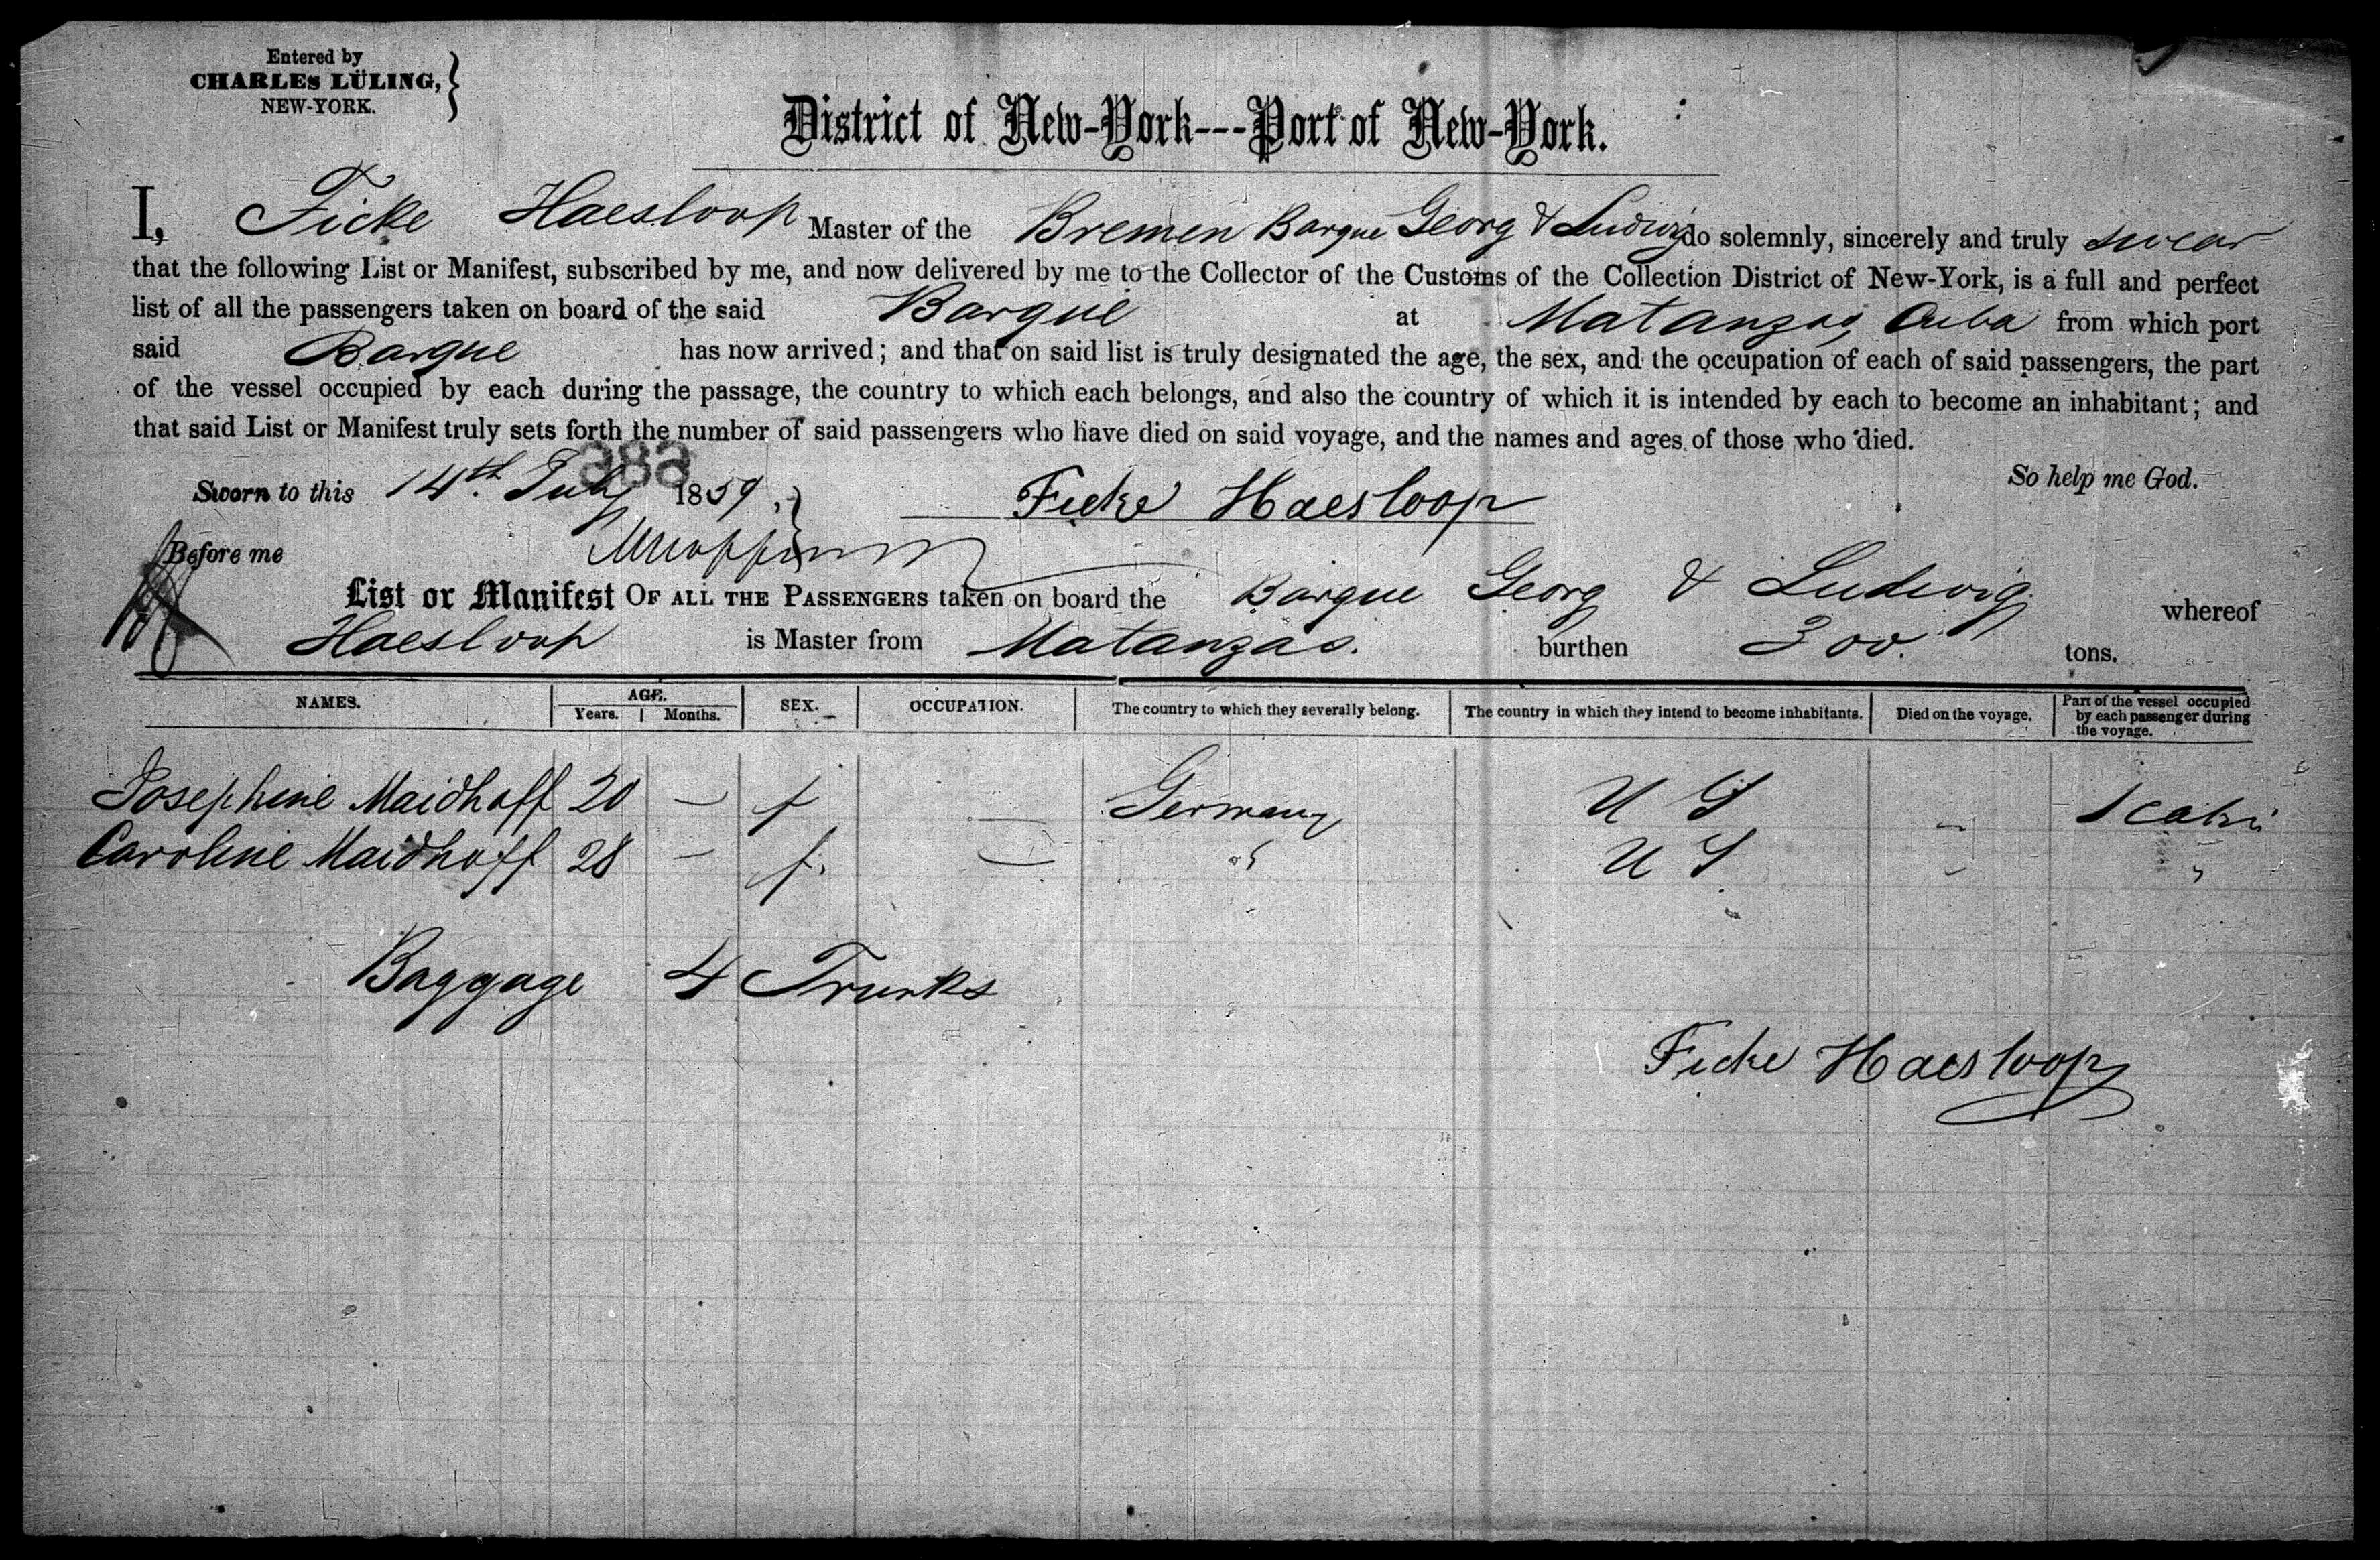 Entered by
CHARLES LÜLING,
NEW-YORK.
District of New-York---Port of New-York.
I, Ficke Haesloop Master of the Bremen Barque Georg & Ludwig do solemnly, sincerely and truly swear
that the following List or Manifest, subscribed by me, and now delivered by me to the Collector of the Customs of the Collection District of New-York, is a full and perfect
list of all the passengers taken on board of the said Barque at Matanzas, Cuba from which port
said Barque has now arrived; and that on said list is truly designated the age, the sex, and the occupation of each of said passengers, the part
of the vessel occupied by each during the passage, the country to which each belongs, and also the country of which it is intended by each to become an inhabitant; and
that said List or Manifest truly sets forth the number of said passengers who have died on said voyage, and the names and ages of those who died.
So help me God.
Sworn to this 14th. July 1859, Ficke Haesloop
Before me
List or Manifest OF ALL THE PASSENGERS taken on board the Barque Georg & Ludwig whereof
Haesloop is Master from Matanzas. burthen 300. tons.
NAMES. AGE. Years. Months. SEX. OCCUPATION. The country to which they severally belong. The country in which they intend to become inhabitants. Died on the voyage. Part of the vessel occupied by each passenger during the voyage.
Josephine Maidhoff 20 — f — Germany U S -
Caroline Maidhoff 28 — f. — " U S. - "
Baggage 4 Trunks
Ficke Haesloop